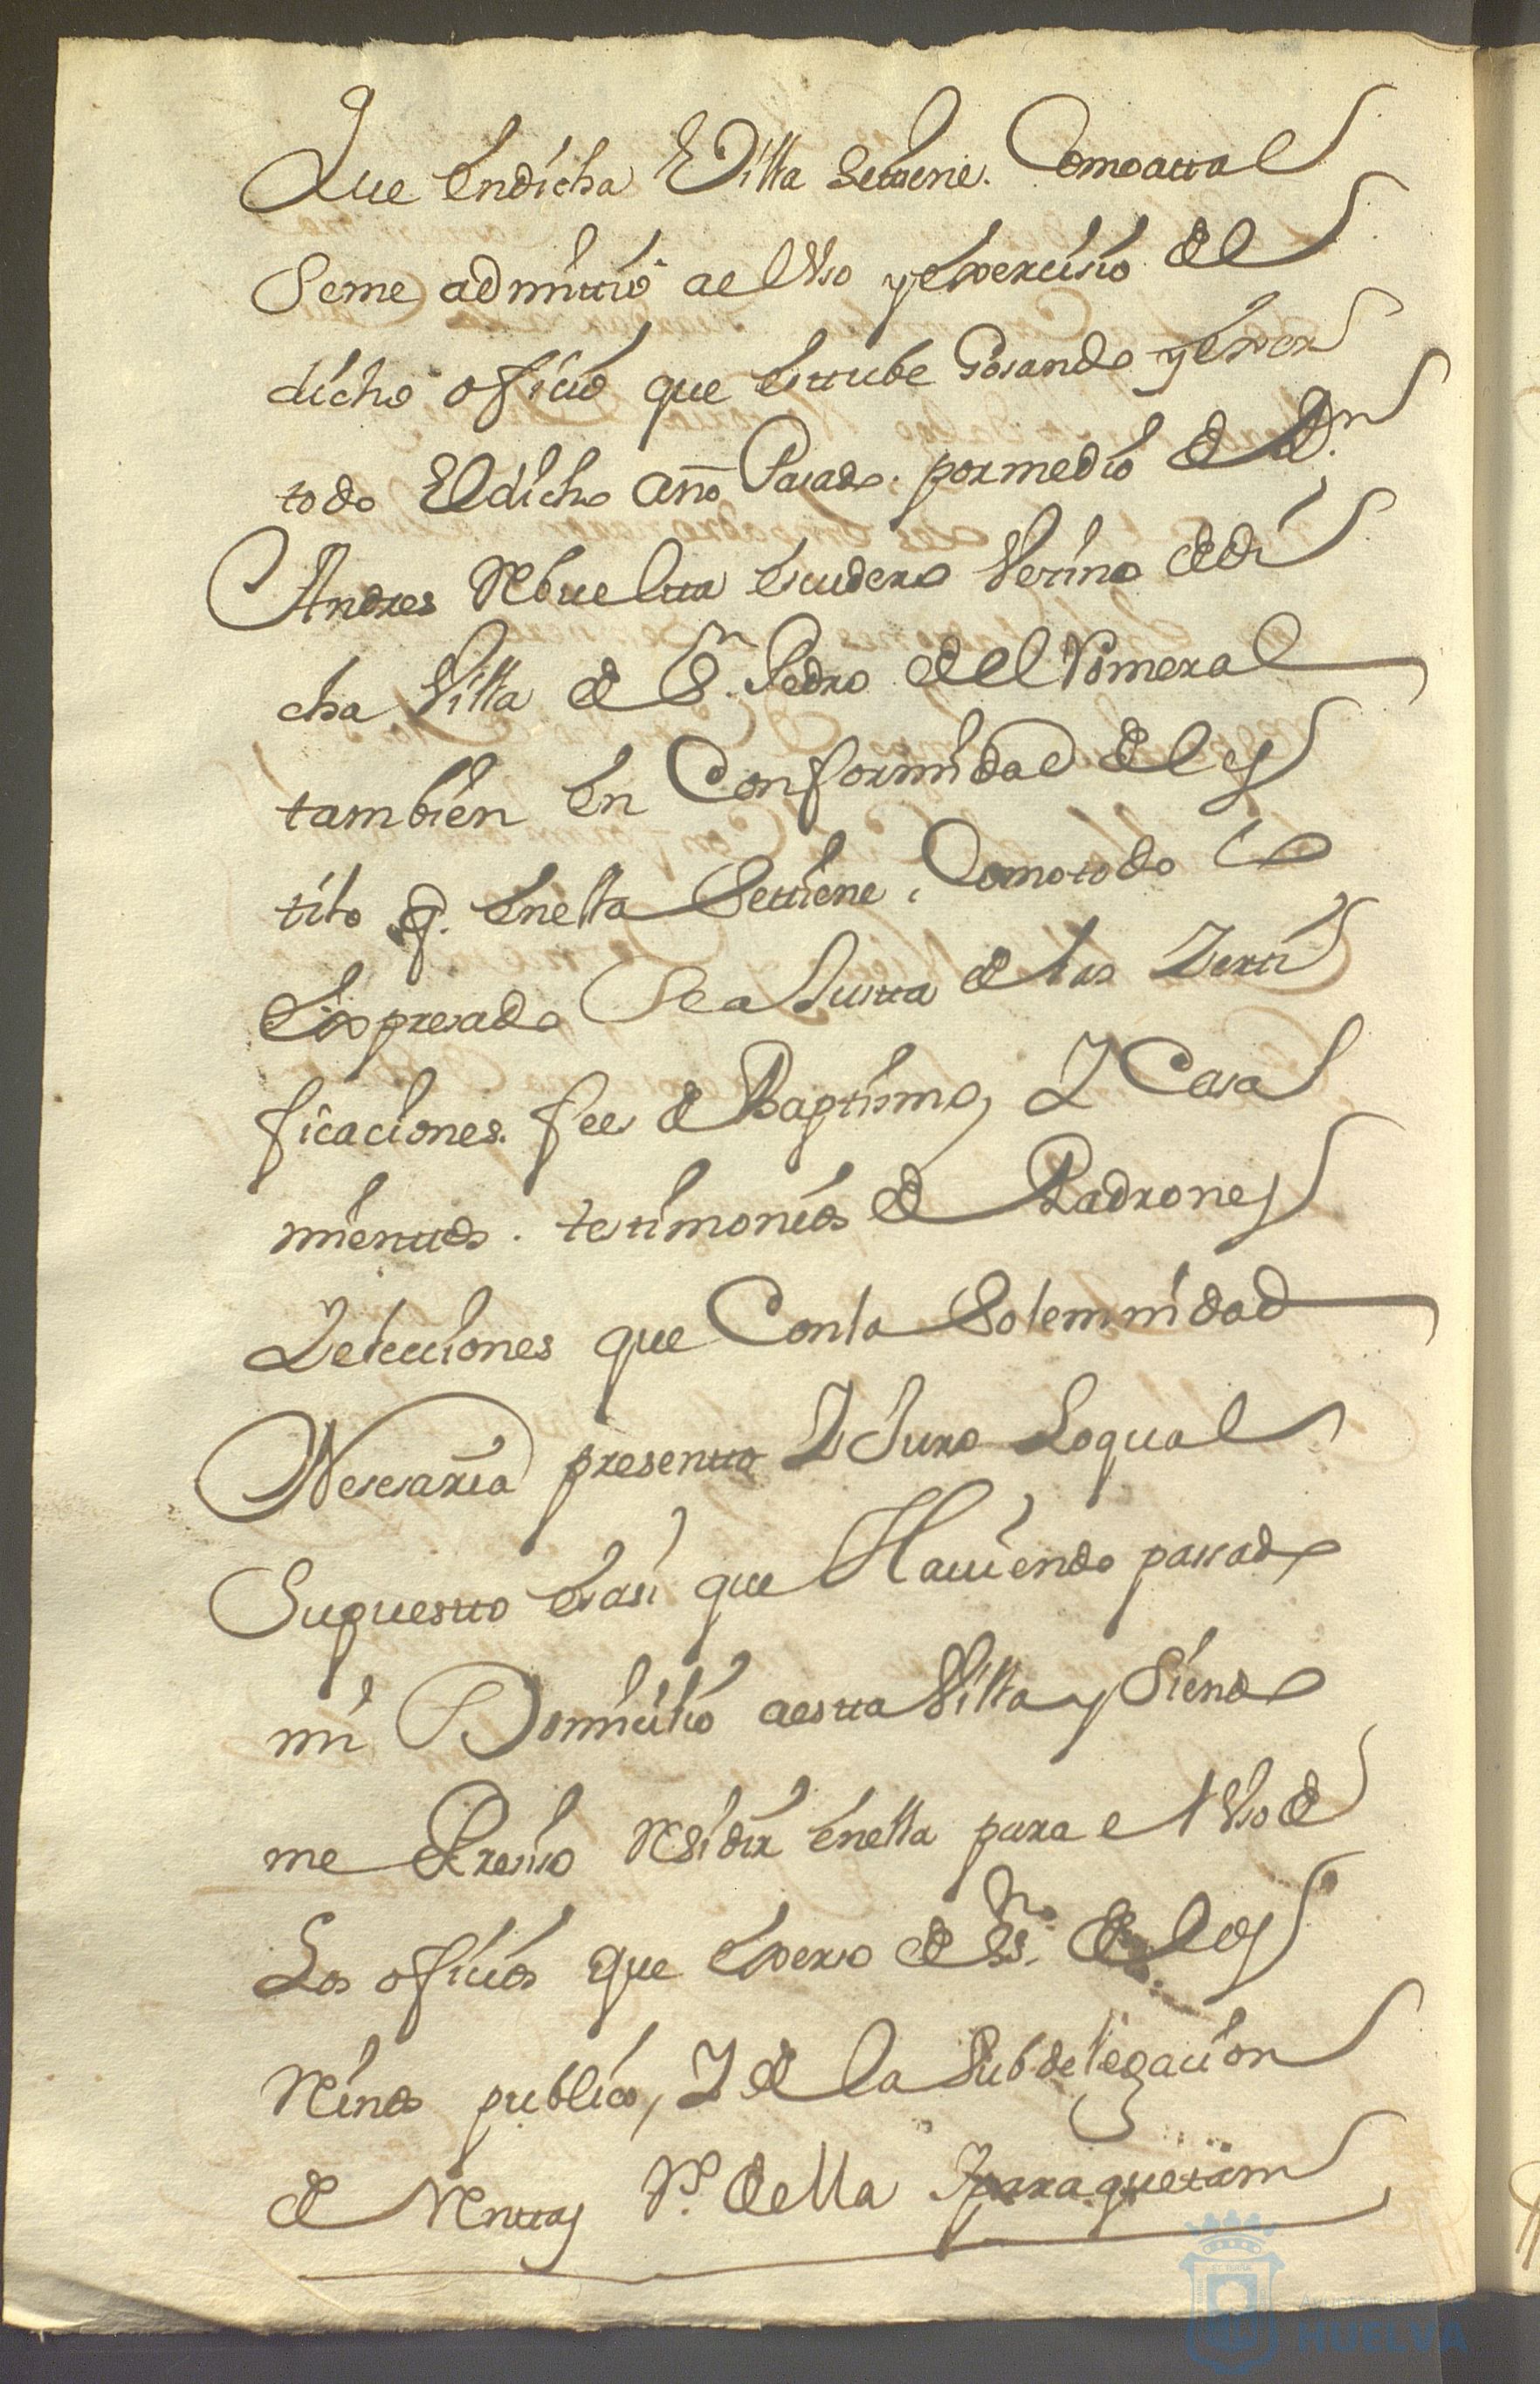 Que endicha Villa setiene. Comoatal
seme admittio ael Uso yexercisio del
dicho oficio que estube Gosando yexer
todo Eldicho año Pasado. pormedio de Dn
Andres Rebuelta escudero Vezino dedi
cha Villa de Sn. Pedro del Romeral
tambien en Conformidad del es
tilo q. enella setiene, Comotodo lo
Expresado Resulta de las Zerti
ficaciones. fee de Baptismo, Y Casa
mientos. testimonios de Padrones
Yelecciones que Conla Solemnidad
Nesesaria presento Y Juro Loqual
Supuesto esasi que Haviendo passado
mi Domicilio aesta Villa y siendo
me Presiso Residir enella para el Uso de
Los oficios que exerso de Es.no de los
Reinos publico, Y de la Subdelegacion
de Rentas Rs. della Yparaquetam
HUELVA